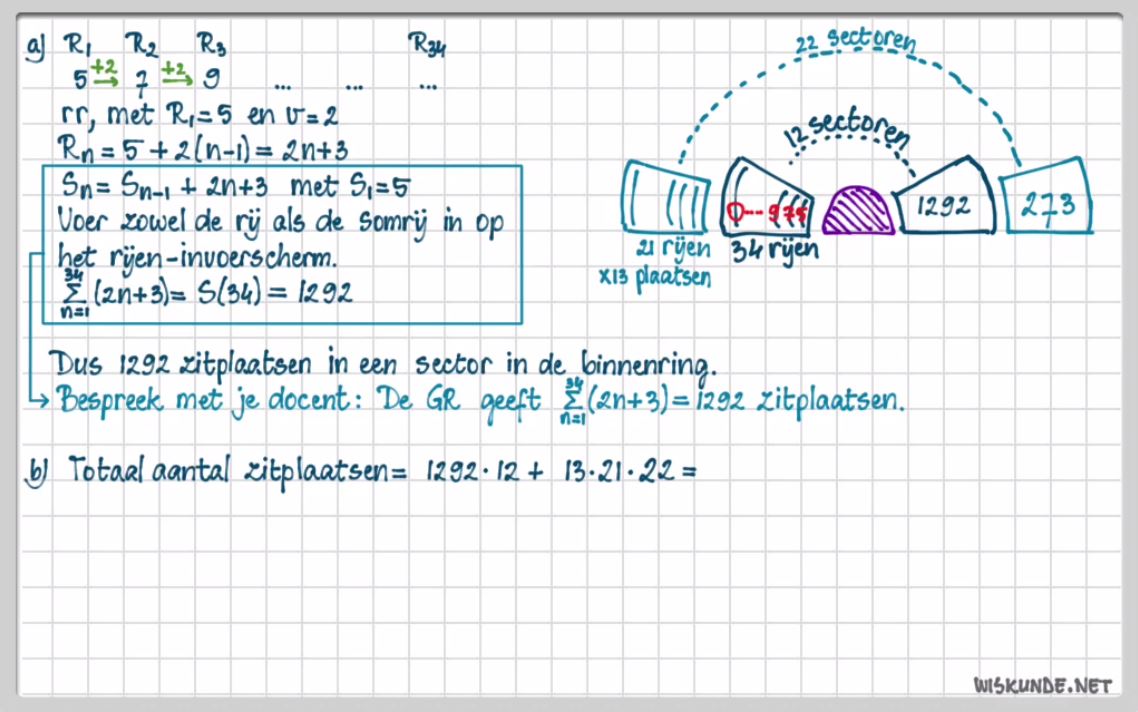 a) R₁ R₂ R₃ R₃₄
5 +2→ 7 +2→ 9 ... ... ...
rr, met R₁=5 en v=2
Rn = 5 + 2(n-1) = 2n+3
Sn = Sn-1 + 2n+3 met S₁=5
Voer zowel de rij als de somrij in op
het rijen-invoerscherm.
34
Σ (2n+3) = S(34) = 1292
n=1
Dus 1292 zitplaatsen in een sector in de binnenring.
Bespreek met je docent: De GR geeft 34 Σ n=1 (2n+3) = 1292 zitplaatsen.
b) Totaal aantal zitplaatsen = 1292·12 + 13·21·22 =
22 sectoren
12 sectoren
975
1292
273
21 rijen
x13 plaatsen
34 rijen
WISKUNDE.NET